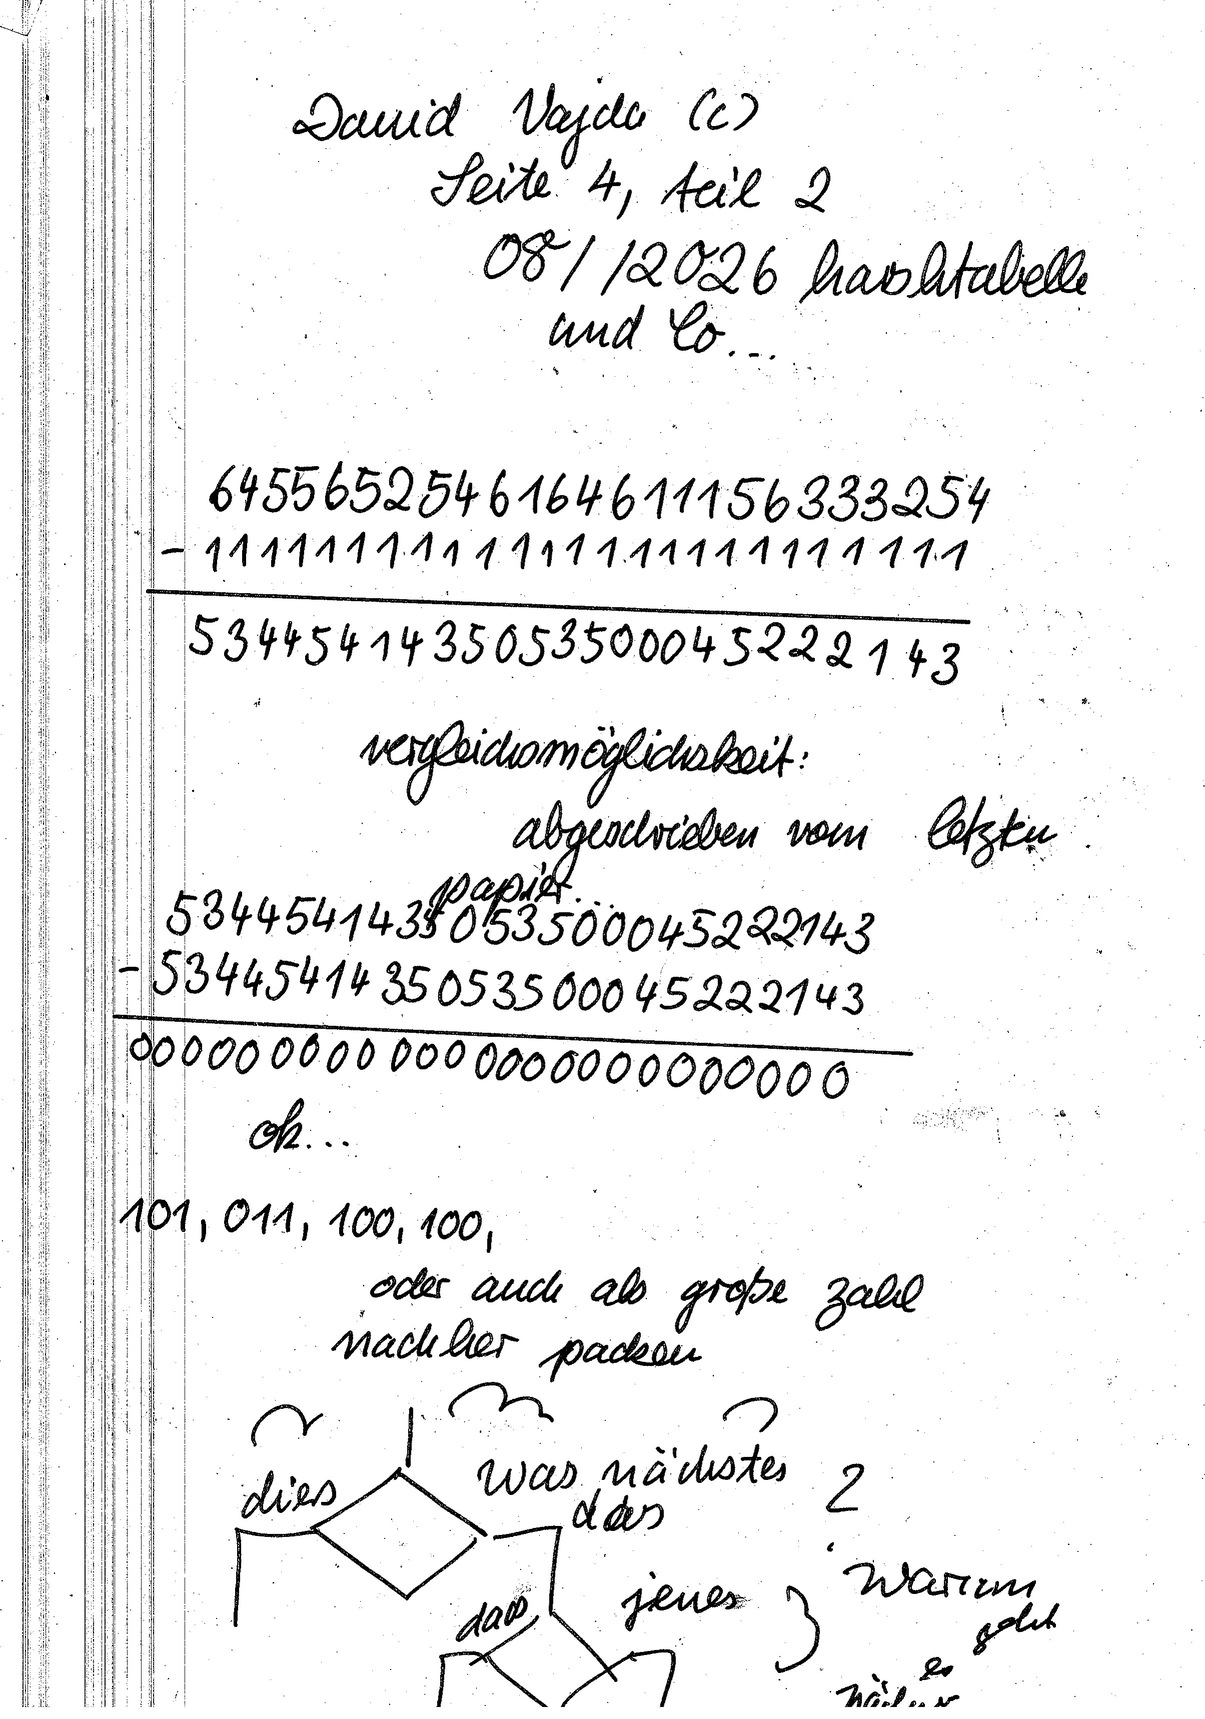 David Vajda (c)
Seite 4, teil 2
08/ /2026 hashtabelle
und Co...
6455652546164611156333254
- 1111111111111111111111111
5344541435053500045222143
vergleichsmöglichkeit:
abgeschrieben vom letzten
papier...
5344541435053500045222143
- 5344541435053500045222143
0000000000000000000000000
ok...
101, 011, 100, 100,
oder auch als große zahl
nachher packen
dies was nächstes 2
das
dass jenes } warum
geht
es